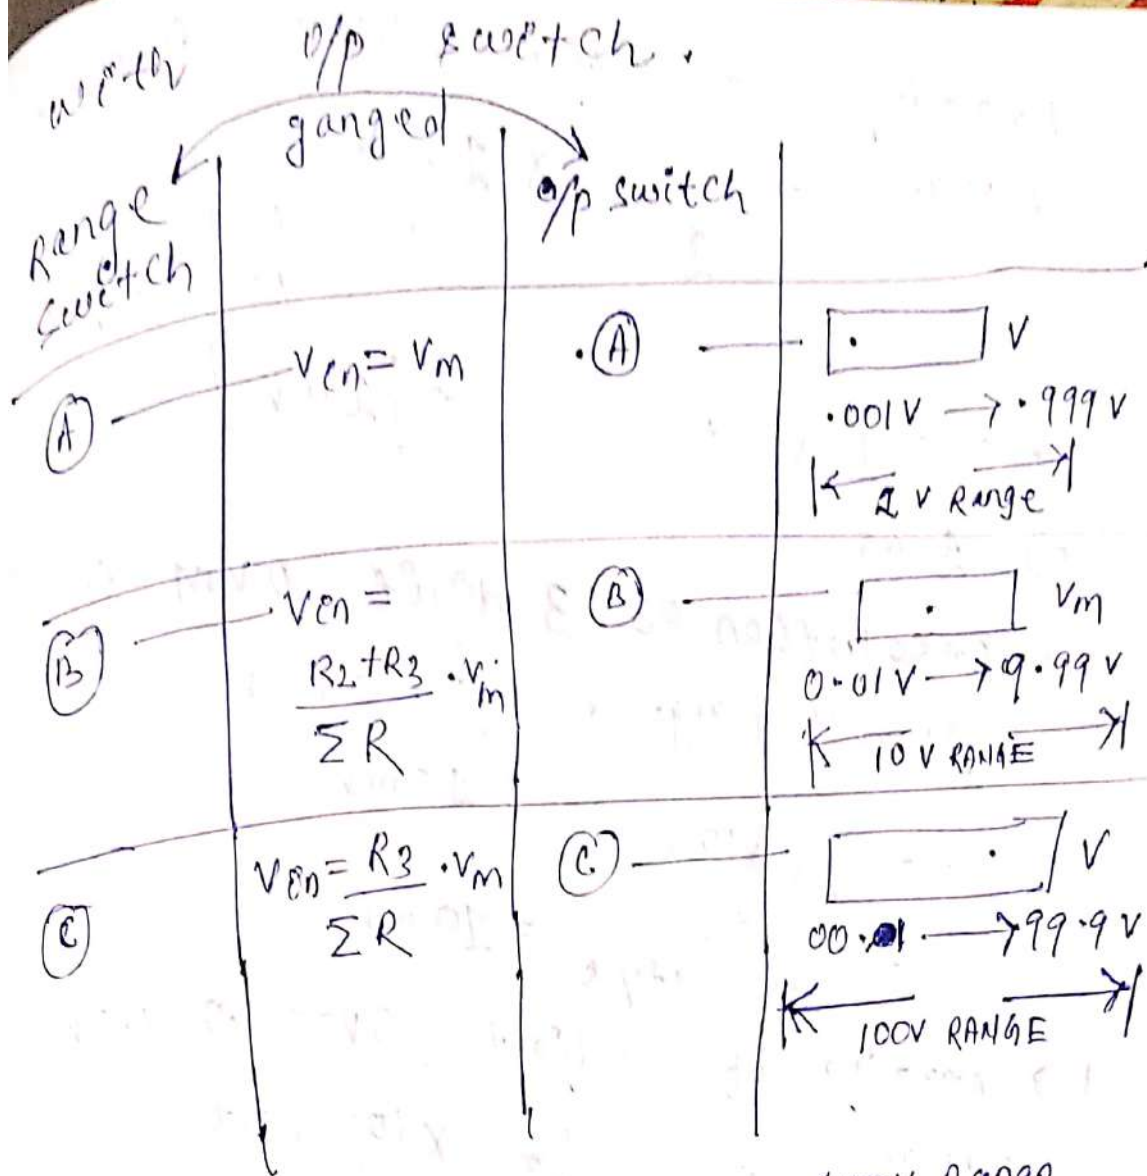 with o/p switch.
ganged
Range
switch
o/p switch
A
Ven = Vm
A
. V
.001V → .999 V
1 V Range
B
Ven =
R2+R3 / ΣR . Vin
B
. Vm
0.01V → 9.99 V
10 V RANGE
C
Ven = R3 / ΣR . Vm
C
. V
00.1 → 99.9 V
100V RANGE